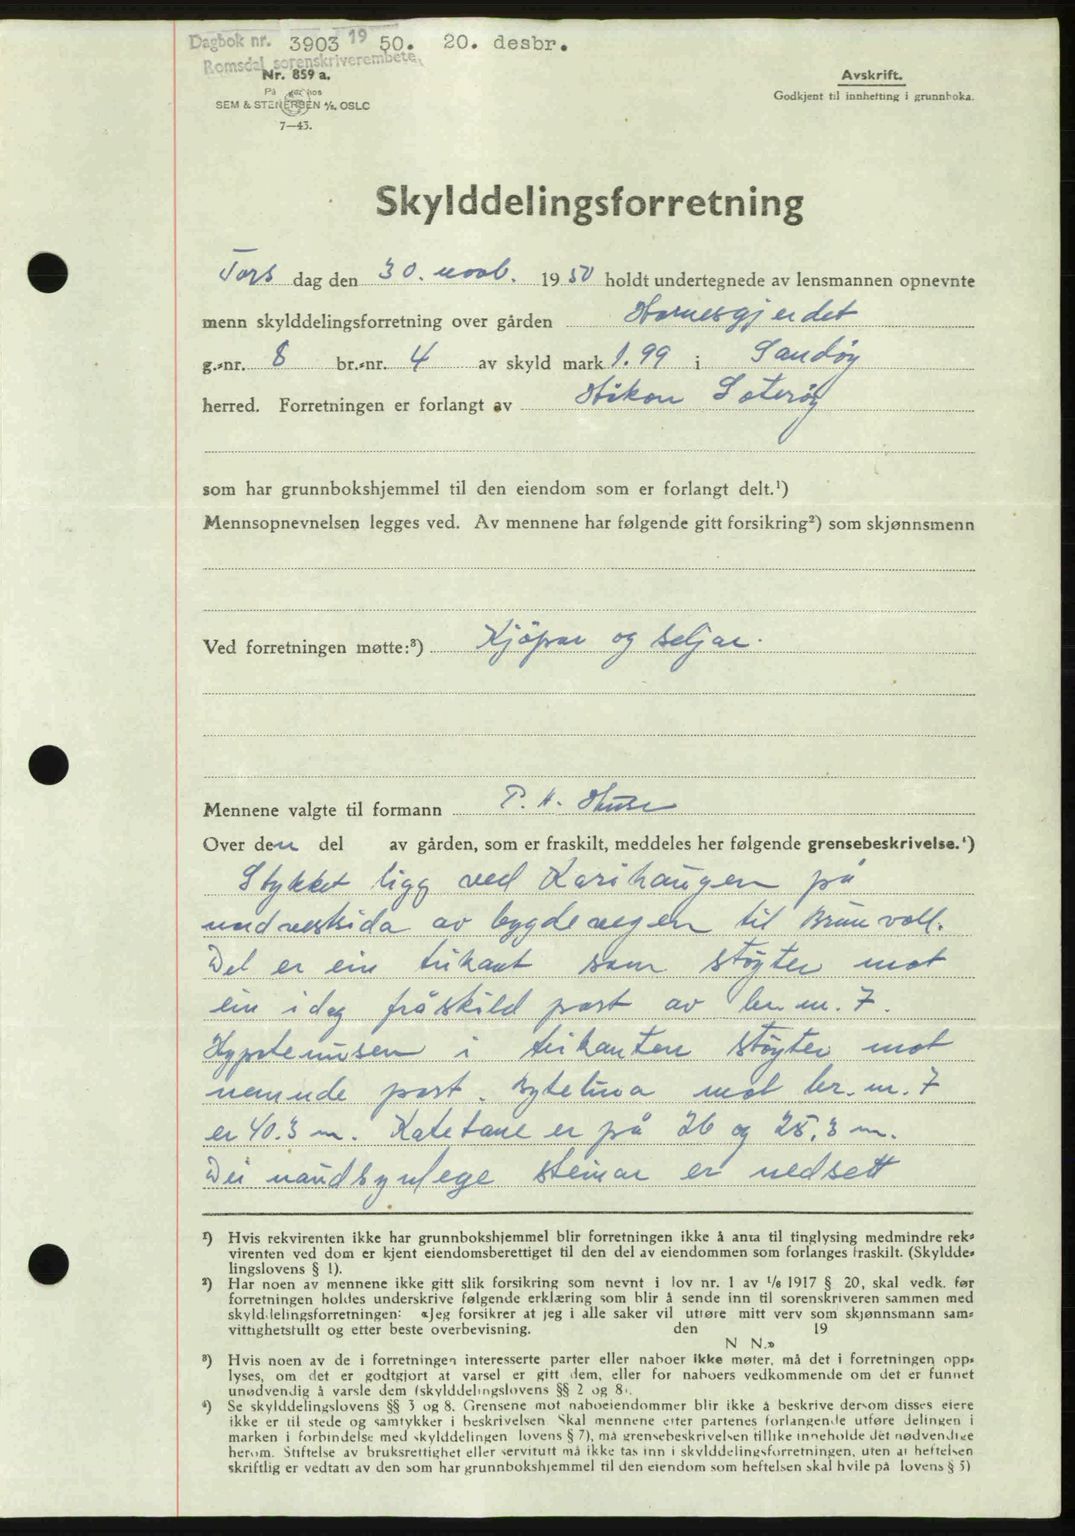 Dagbok nr. 3903 19 50. 20. desbr.
Romsdal sorenskriverembete.
Nr. 859 a.
På hos
SEM & STENERSEN A/S, OSLO
7—43.
Avskrift.
Godkjent til innhefting i grunnboka.
Skylddelingsforretning
Tors dag den 30. novb. 1950 holdt undertegnede av lensmannen opnevnte
menn skylddelingsforretning over gården Harnesgjerdet
g.-nr. 8 br.-nr. 4 av skyld mark 1.99 i Sandøy
herred. Forretningen er forlangt av Håkon Sæterøy
som har grunnbokshjemmel til den eiendom som er forlangt delt.¹)
Mennsopnevnelsen legges ved. Av mennene har følgende gitt forsikring²) som skjønnsmenn
Ved forretningen møtte:³) Kjöpar og seljar.
Mennene valgte til formann P. H. Huse
Over den del av gården, som er fraskilt, meddeles her følgende grensebeskrivelse.⁴)
Stykket ligg ved Karihaugen på
nordvestsida av bygdevegen til Brunvoll.
Det er ein trikant som støyter mot
ein idag fråskild part av br. nr. 7.
Hypotenusen i trikanten støyter mot
nemnde part. Bytelina mot br. nr. 7
er 40.3 m. Katetane er på 26 og 25,3 m.
Dei naudsynlege steinar er nedsett
¹) Hvis rekvirenten ikke har grunnbokshjemmel blir forretningen ikke å anta til tinglysing medmindre rek-
virenten ved dom er kjent eiendomsberettiget til den del av eiendommen som forlanges fraskilt. (Skyldde-
lingslovens § 1).
²) Har noen av mennene ikke gitt slik forsikring som nevnt i lov nr. 1 av 1/6 1917 § 20, skal vedk. før
forretningen holdes underskrive følgende erklæring som blir å sende inn til sorenskriveren sammen med
skylddelingsforretningen: «Jeg forsikrer at jeg i alle saker vil utføre mitt verv som skjønnsmann sam-
vittighetsfullt og etter beste overbevisning. den 19
N N.»
³) Hvis noen av de i forretningen interesserte parter eller naboer ikke møter, må det i forretningen opp-
lyses, om det er godtgjort at varsel er gitt dem, eller for naboers vedkommende om det er funnet
unødvendig å varsle dem (skylddelingslovens §§ 2 og 8).
⁴) Se skylddelingslovens §§ 3 og 8. Grensene mot naboeiendommer blir ikke å beskrive dersom disses eiere
ikke er til stede og samtykker i beskrivelsen. Skal mennene etter partenes forlangende utføre delingen i
marken i forbindelse med skylddelingen (lovens § 7), må grensebeskrivelsen tillike inneholde det nødvendige
herom. Stiftelse av bruksrettighet eller servitutt må ikke tas inn i skylddelingsforretningen, uten at heftelsen
skriftlig er vedtatt av den som har grunnbokshjemmel til den eiendom som heftelsen skal hvile på (lovens § 5)